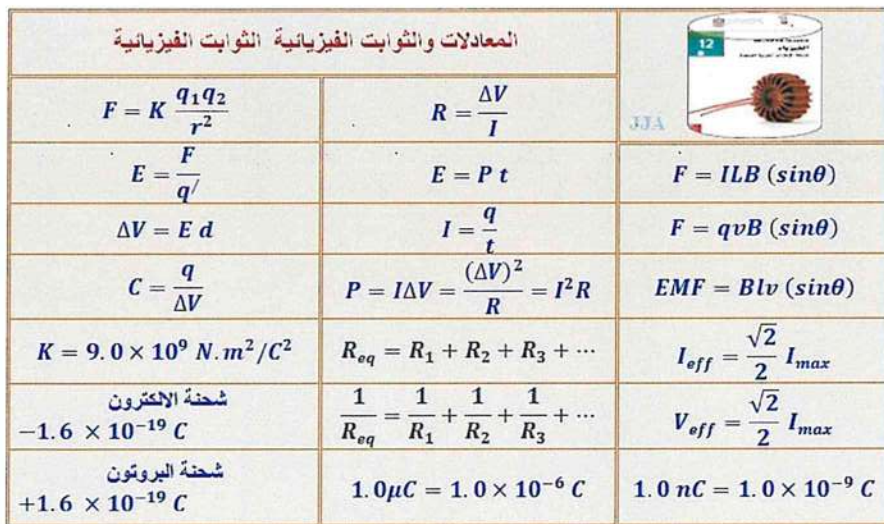 المعادلات والثوابت الفيزيائية الثوابت الفيزيائية
12
الفيزياء
JJA
F = K q₁q₂ / r²
R = ΔV / I
E = F / q′
E = P t
F = ILB (sinθ)
ΔV = E d
I = q / t
F = qvB (sinθ)
C = q / ΔV
P = IΔV = (ΔV)² / R = I²R
EMF = Blv (sinθ)
K = 9.0 × 10⁹ N.m²/C²
R_eq = R₁ + R₂ + R₃ + ⋯
I_eff = √2 / 2 I_max
شحنة الالكترون
−1.6 × 10⁻¹⁹ C
1 / R_eq = 1 / R₁ + 1 / R₂ + 1 / R₃ + ⋯
V_eff = √2 / 2 I_max
شحنة البروتون
+1.6 × 10⁻¹⁹ C
1.0μC = 1.0 × 10⁻⁶ C
1.0 nC = 1.0 × 10⁻⁹ C